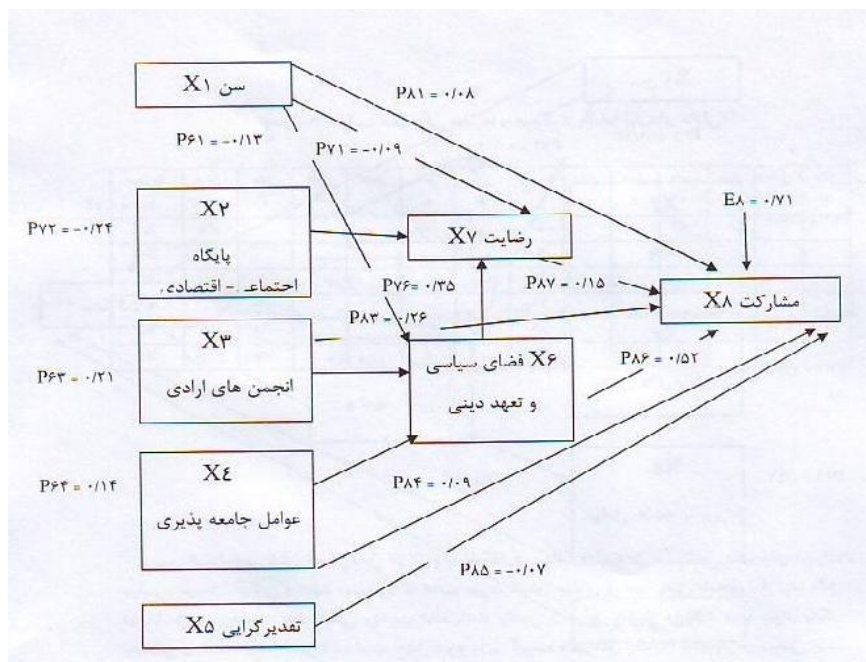 X۱ سن
P۸۱ = ۰/۰۸
P۶۱ = -۰/۱۳
P۷۱ = -۰/۰۹
E۸ = ۰/۷۱
X۲
پایگاه
اجتماعی - اقتصادی
P۷۲ = -۰/۲۴
X۷ رضایت
P۷۶ = ۰/۳۵
P۸۷ = ۰/۱۵
X۸ مشارکت
P۸۳ = ۰/۲۶
X۳
انجمن های ارادی
P۶۳ = ۰/۲۱
X۶ فضای سیاسی
و تعهد دینی
P۸۶ = ۰/۵۲
X٤
عوامل جامعه پذیری
P۶۴ = ۰/۱۴
P۸۴ = ۰/۰۹
P۸۵ = -۰/۰۷
X۵ تقدیرگرایی